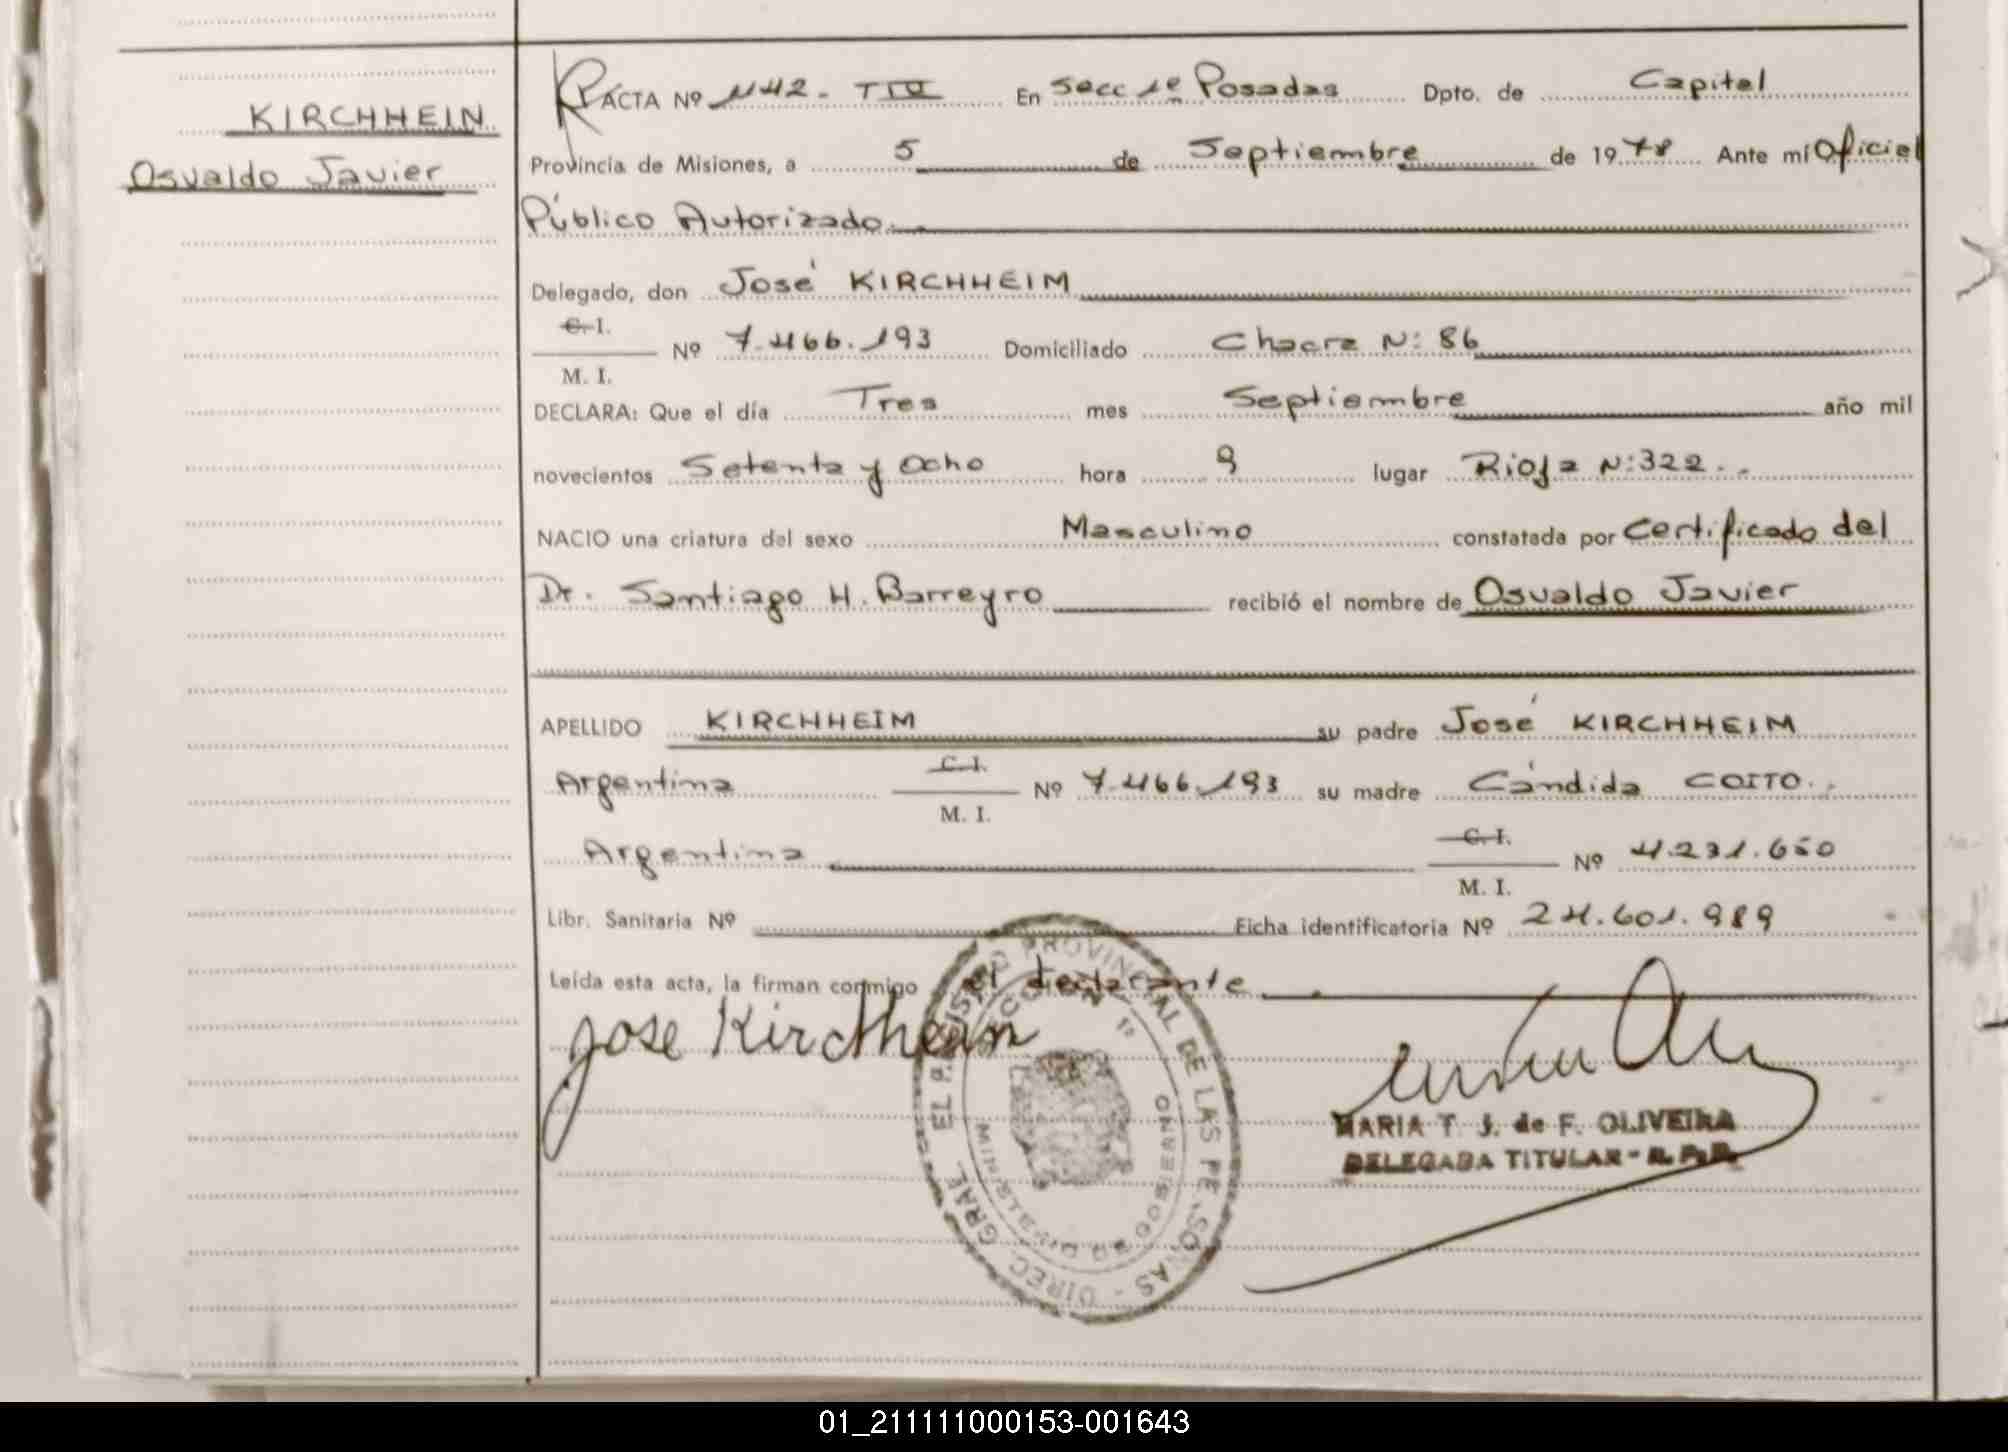 KIRCHHEIN
Osvaldo Javier
ACTA Nº 1142 - TIV En Secc 1ª Posadas Dpto. de Capital
Provincia de Misiones, a 5 de Septiembre de 1978 Ante mí Oficial
Público Autorizado.
Delegado, don José KIRCHHEIM
C. I.
M. I.
Nº 7.466.193 Domiciliado Chacra N: 86
DECLARA: Que el día Tres mes Septiembre año mil
novecientos Setenta y Ocho hora 9 lugar Rioja N: 322.
NACIO una criatura del sexo Masculino constatada por Certificado del
Dr. Santiago H. Barreyro recibió el nombre de Osvaldo Javier
APELLIDO KIRCHHEIM su padre José KIRCHHEIM
Argentina C. I. M. I. Nº 7.466.193 su madre Cándida COITO.
Argentina C. I. M. I. Nº 4.231.650
Libr. Sanitaria Nº Ficha identificatoria Nº 24.601.989
Leída esta acta, la firman conmigo el declarante
Jose Kirchhein
MARIA T. J. de F. OLIVEIRA
DELEGADA TITULAR - R. P. P.
DIREC. GRAL. EL REGISTRO PROVINCIAL DE LAS PERSONAS
SECCION 1ª
MINISTERIO DE GOBIERNO
01_211111000153-001643